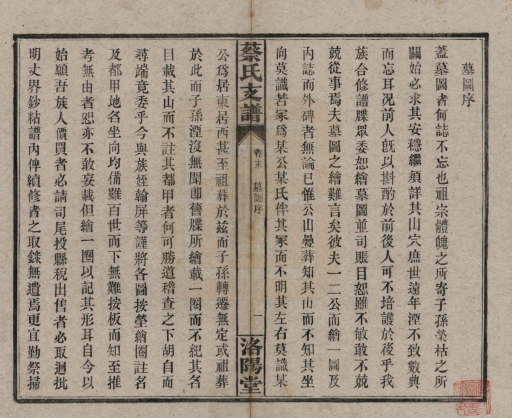 墓圖序
蓋墓圖者何誌不忘也祖宗體魄之所寄子孫榮枯之所
關始必求其安穩繼須詳其山穴庶世遠年湮不致數典
而忘耳况前人既以斟酌於前後人可不培護於後乎我
族合修譜牒眾委恕繪墓圖並司賬目恕雖不敏敢不兢
兢從事焉夫墓圖之繪難言矣彼夫一二公而繪一圖及
内誌而外碑者無論已惟公山㬥葬知其山而不知其坐
向莫識若冢為某公某氏件其冢而不明其左右莫識某
蔡氏支譜
卷末
墓圖序
一
洛陽堂
公為居東居西甚至祖葬於茲而子孫轉遷無定或祖葬
於此而子孫湮沒無聞卽舊牒所繪載一圈而不紀其名
目載其山而不註其都甲者何可勝道稽查之下胡自而
尋端竟委乎今與族姪翰屏等謹將各圖按塋繪圈註名
及都甲地名坐向均備雖百世而下無難按板而知至推
考無由者恕亦不敢妄載但繪一圈以記其形耳自今以
始願吾族人價買者必請司尾投縣稅出售者必取廻批
明丈界鈔粘譜内俾續修者之取錄無遺焉更宜勤祭掃